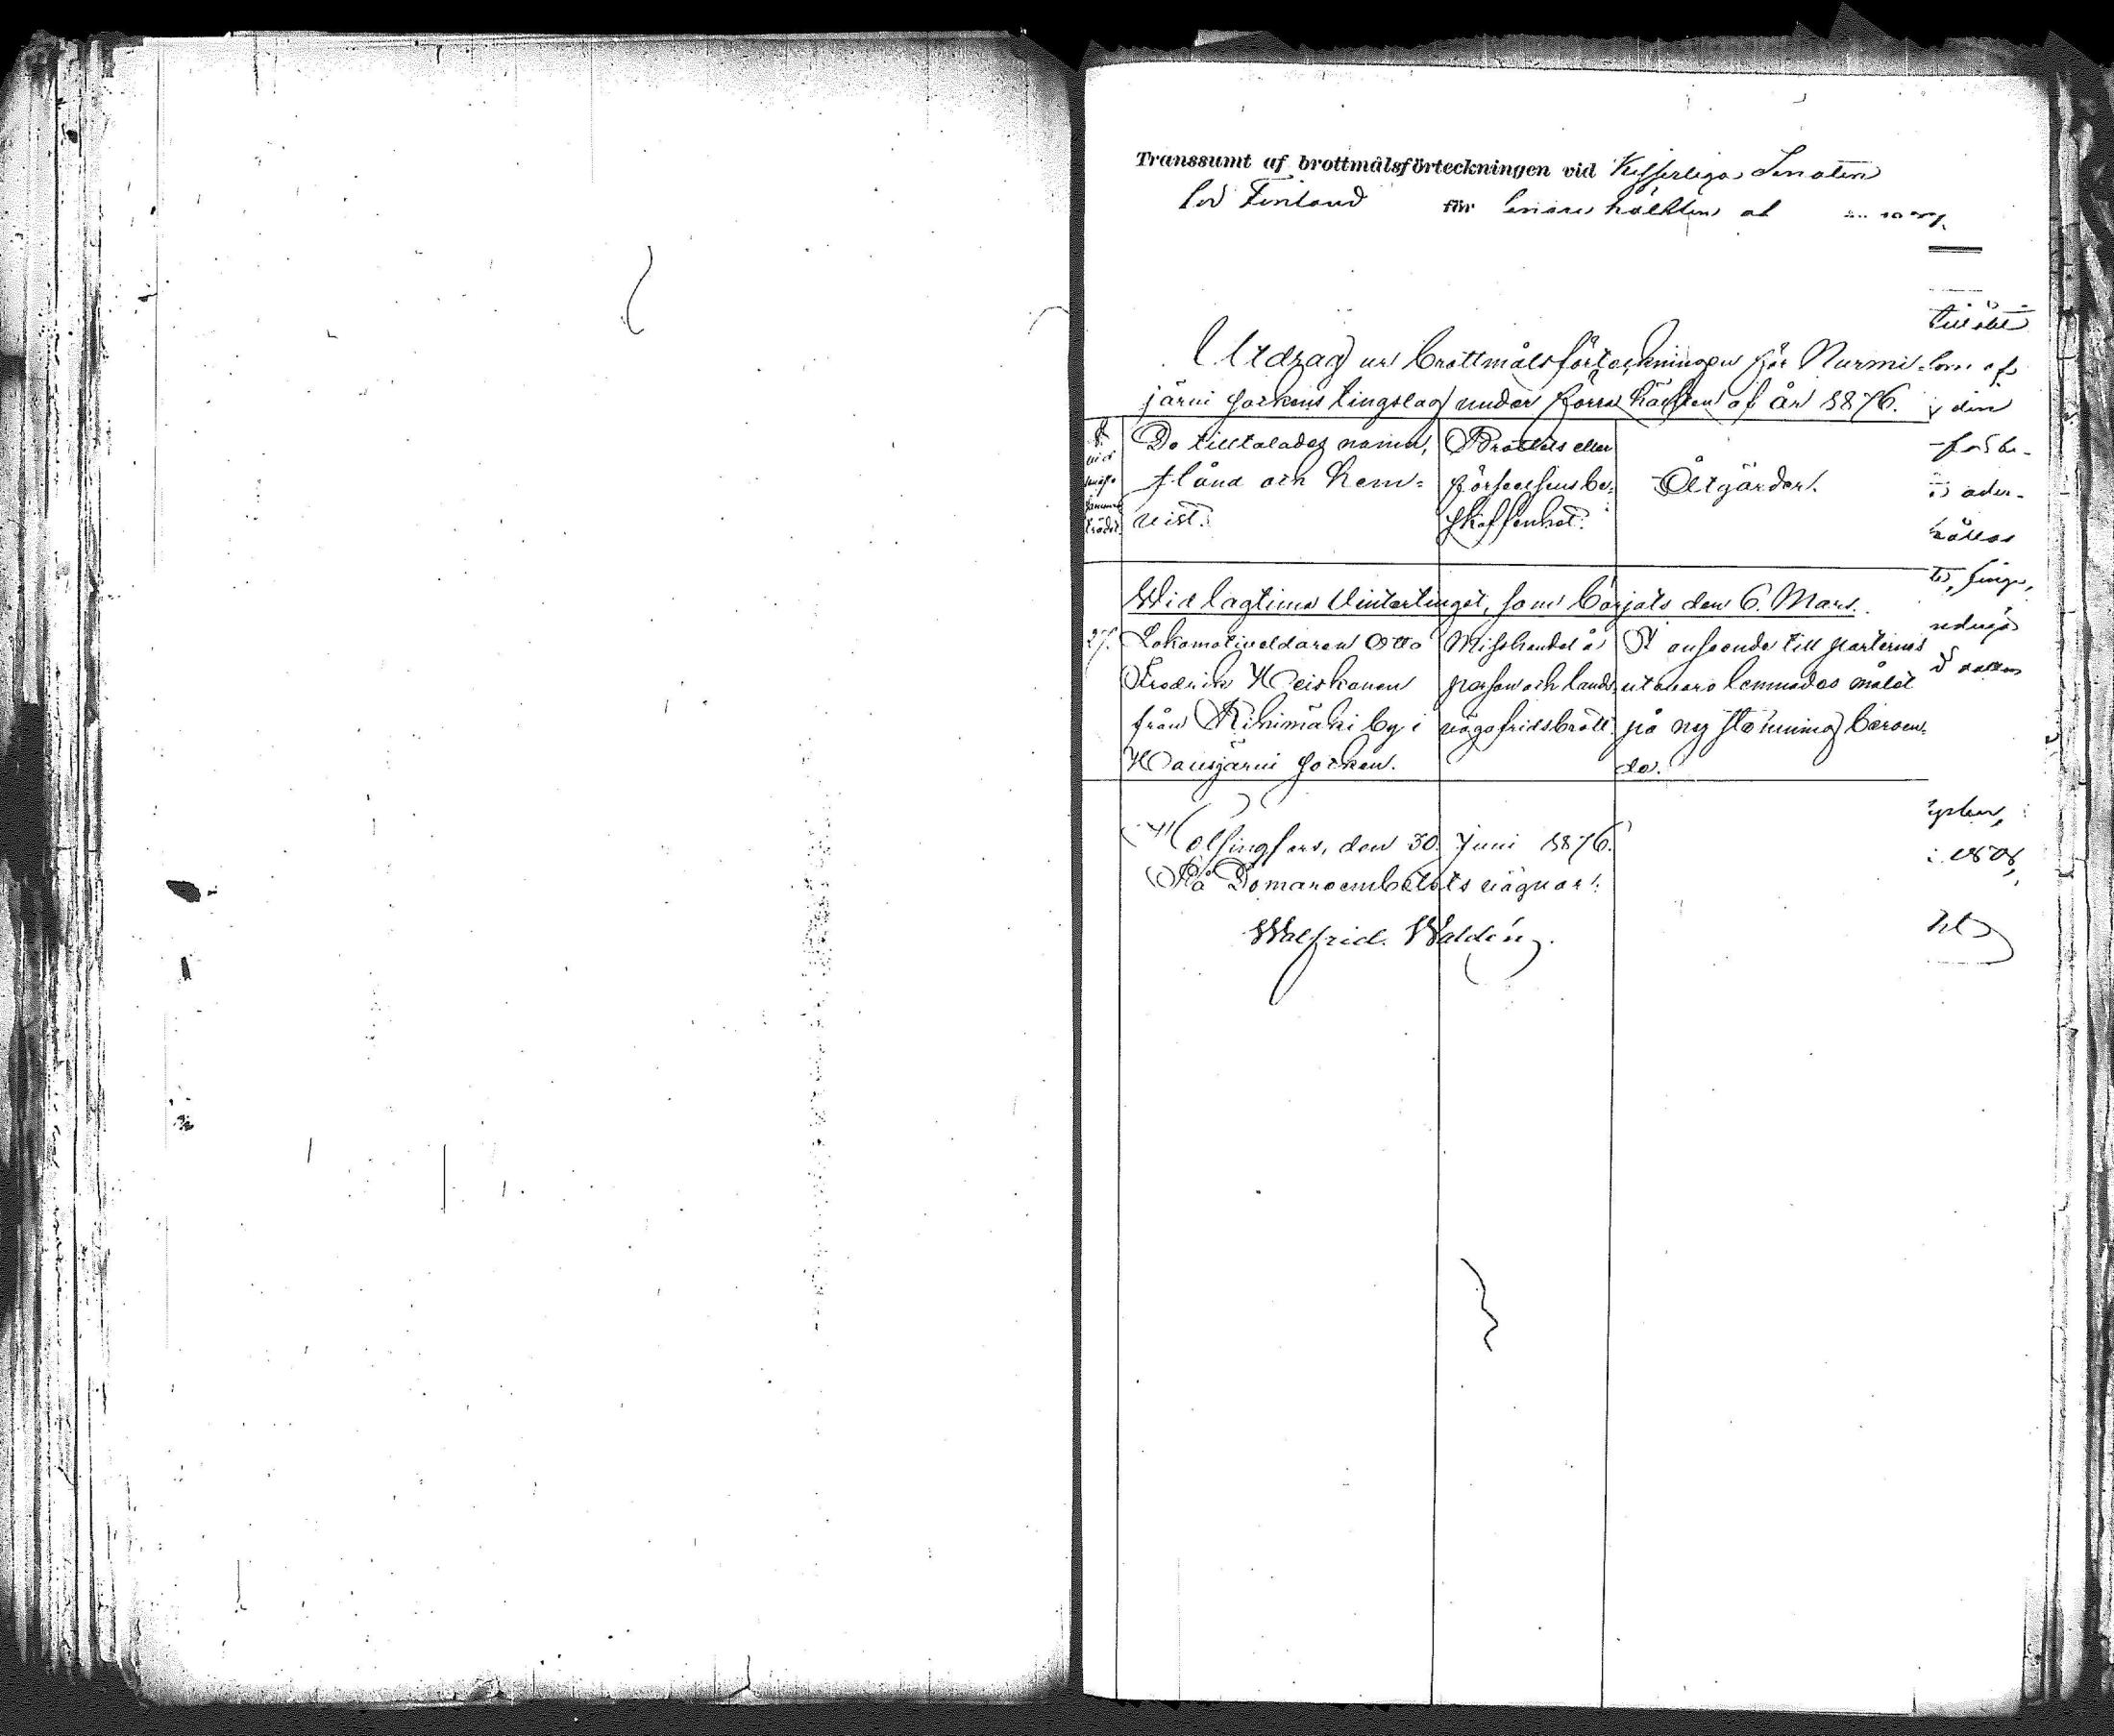 Transsumt af brottmålsförteckningen vid Kejserliga Senaten
för Finland för senare hälften af
Utdrag ur brottmålsförteckningen för Nurmi-
järvi sockens tingslag under förra hälften af år 1876.
De tilltalades namn,
stånd och hem-
vist.
Brottets eller
förseelsens be-
skaffenhet.
Åtgärder.
Wid lagtima Vintertinget, som börjats den 6. Mars.
27. Lokomotiveldaren Otto
Fredrik Heiskanen
från Rihimäki by i
Hausjärvi socken.
Misshandel å
person och lands-
vägafridsbrott.
I anseende till parternes
utevaro lemnades målet
på ny stämning beroen-
de.
Helsingfors, den 30. Juni 1876.
På Domareembetets vägnar:
Walfrid Waldén.
tillåtit
som af
den
hållas